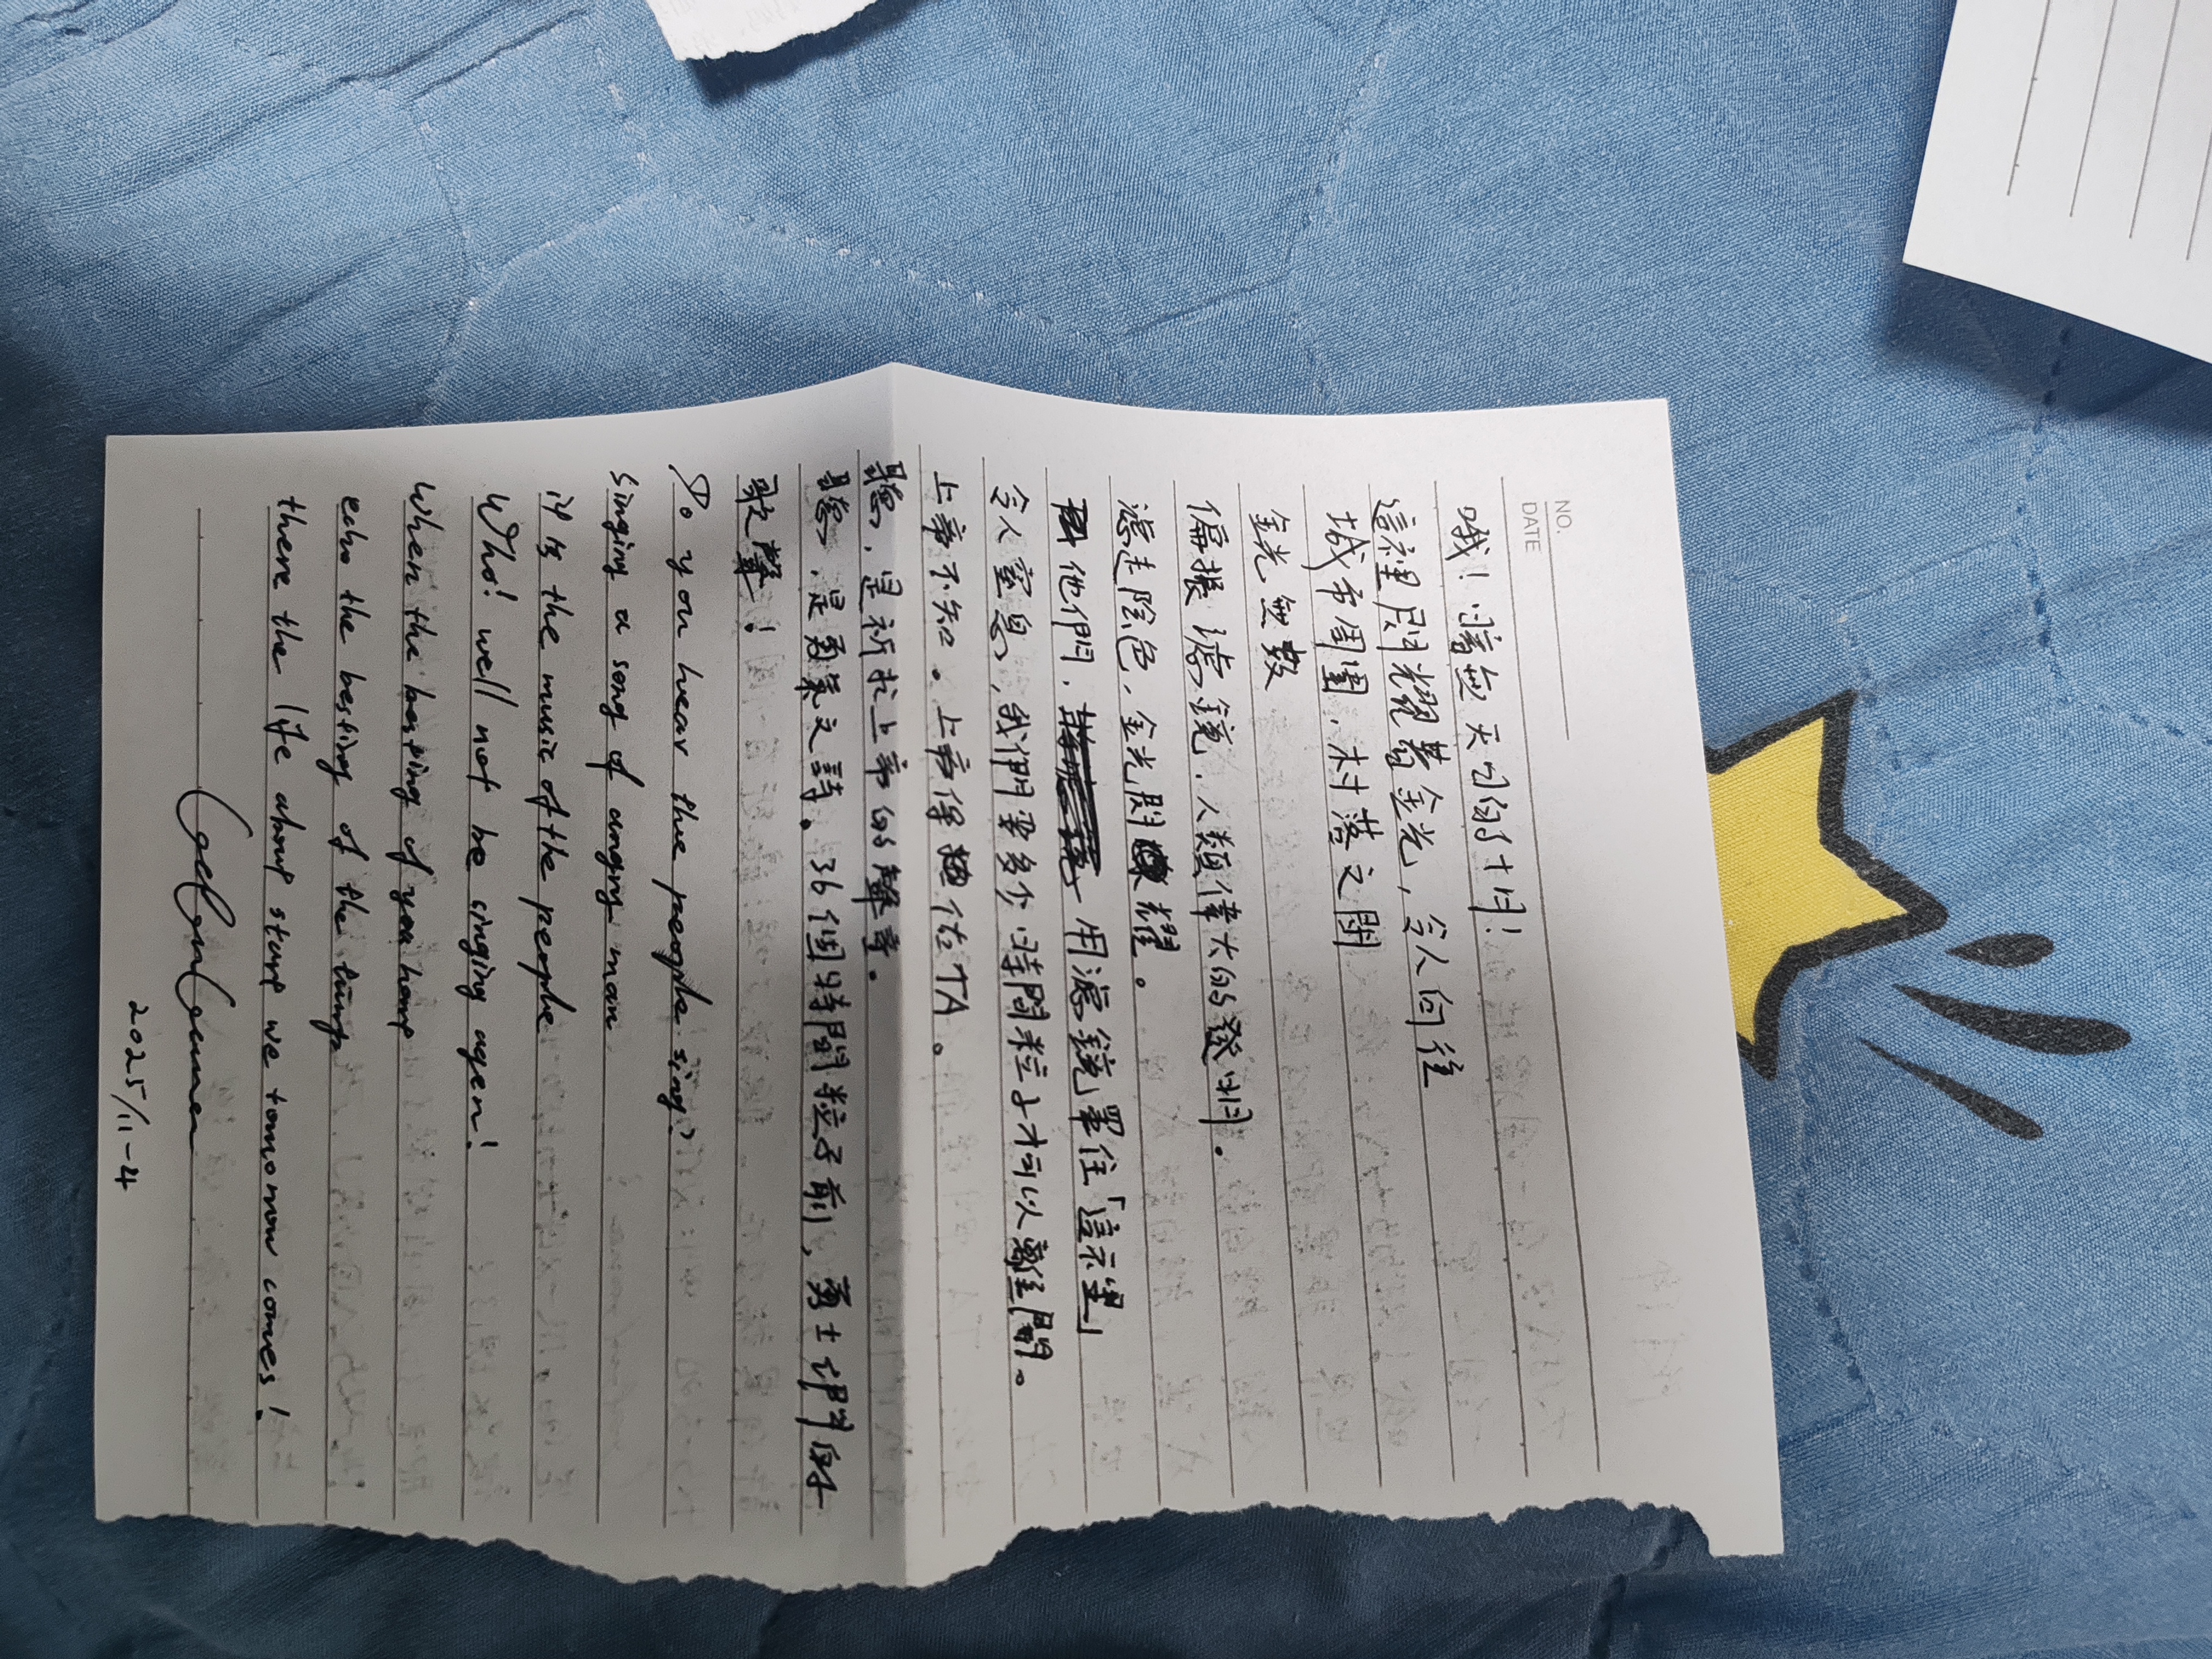 NO.
DATE
哦！暗無天日的十月！
這裡閃耀著金光，令人向往
城市周圍，村落之間
金光無數
偏振濾鏡，人類偉大的發明。
濾走除色，金光閃耀。
他們，用濾鏡罩住「這裡」
令人窒息，我們要多少時間粒子才可以離開。
上帝不知。上帝保佑TA。
聽，是祈求上帝的聲音。
聽，是勇氣之詩。36個時間粒子前，勇士們的
歌聲！
Do you hear the people sing?
Singing a song of angry man
it is the music of the people
Who! well not be singing agen!
When the beating of you
echo the beating of the
there the life about start we tomorrow comes!
2025/11-4